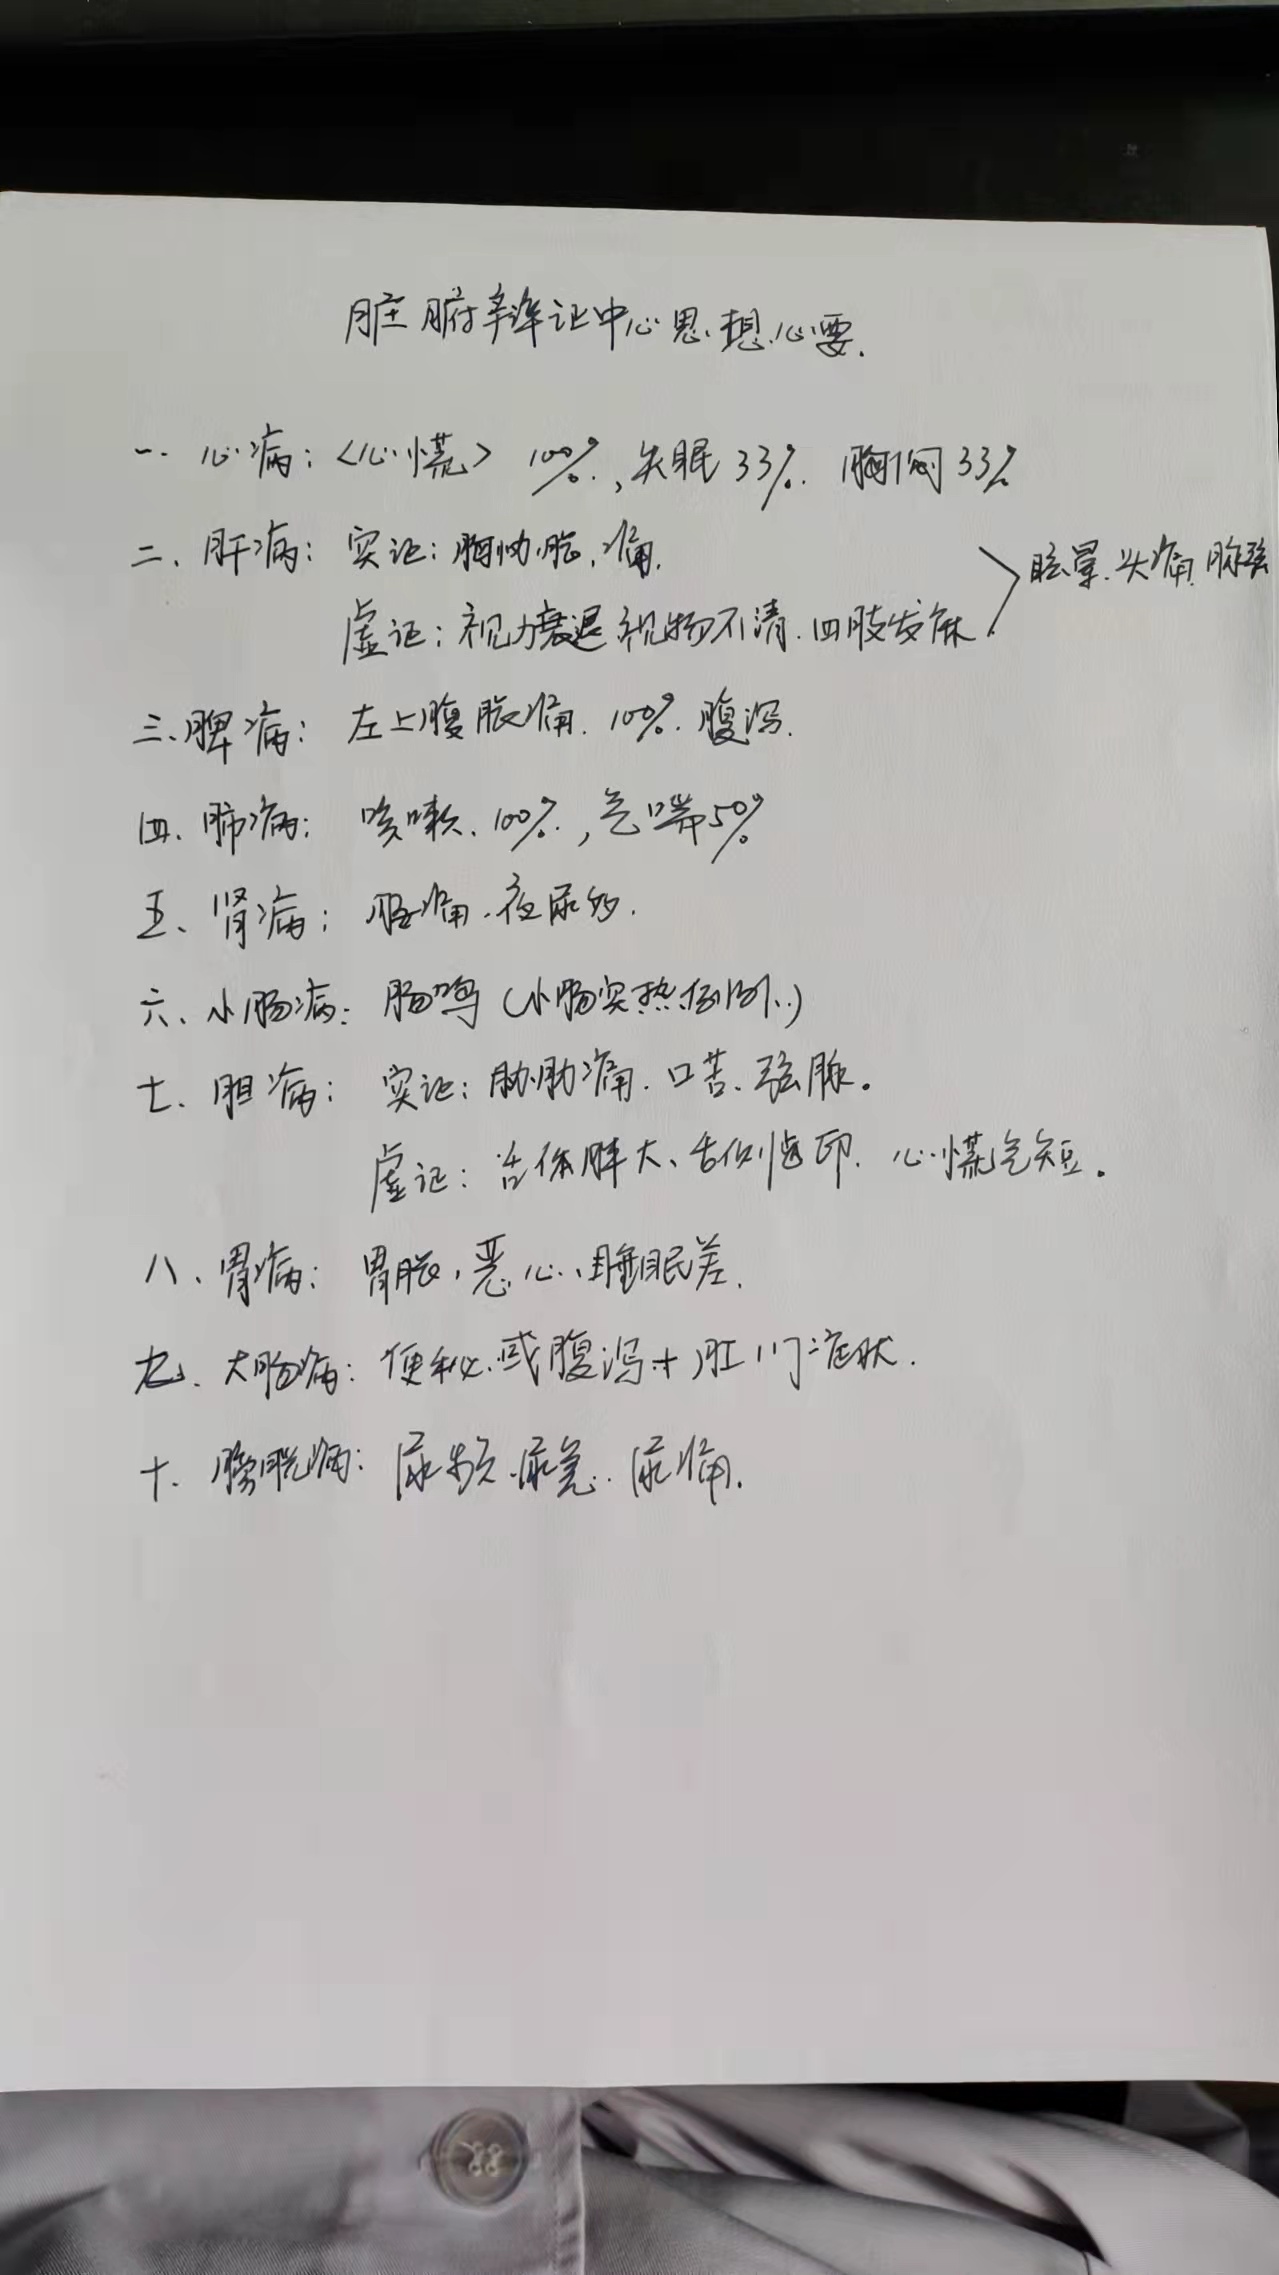 脏腑辩证中心思想心要.
一. 心病:<心慌> 100%.,失眠33%. 胸闷33%
二、肝病: 实证:胸胁胀.痛.
眩晕.头痛.脉弦
虚证:视力衰退 视物不清.四肢发麻.
三、脾病: 左上腹胀痛. 100%. 腹泻.
四、肺病: 咳嗽、100%.,气喘50%
五、肾病: 腰痛.夜尿多.
六、小肠病: 肠鸣(小肠实热例外..)
七、胆病: 实证:胁肋痛.口苦.弦脉。
虚证:舌体胖大、舌侧齿印. 心慌气短。
八、胃病: 胃胀,恶心、睡眠差.
九、大肠病:便秘.或腹泻+肛门症状.
十、膀胱病:尿频.尿急..尿痛.